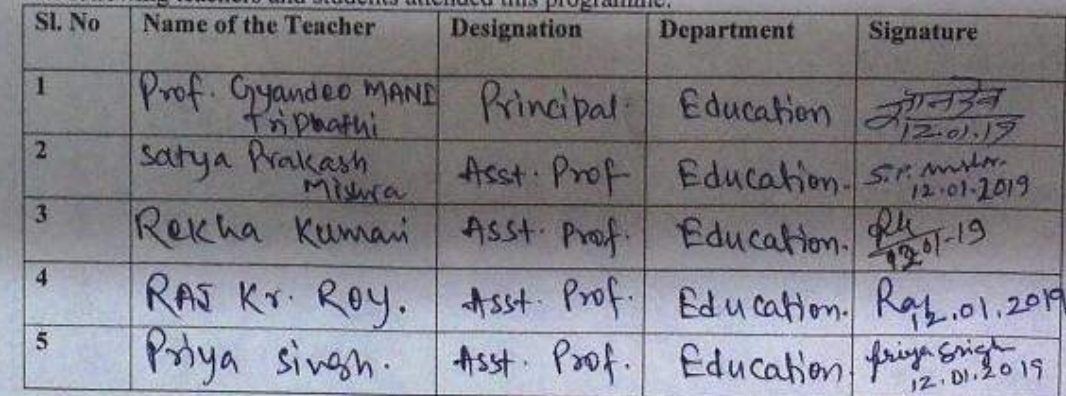 following teachers and students attended this programme.
Sl. No Name of the Teacher Designation Department Signature
1 Prof. Gyandeo MANI Principal. Education ज्ञानदेव
Tripathi 12.01.19
2 Satya Prakash Asst. Prof Education. S.P. Mishra.
Mishra 12.01.2019
3 Rekha Kumari Asst. Prof. Education. Rk
12.01-19
4 RAJ Kr. ROY. Asst. Prof. Education. Raj
12.01.2019
5 Priya Singh. Asst. Prof. Education Priya Singh
12.01.2019